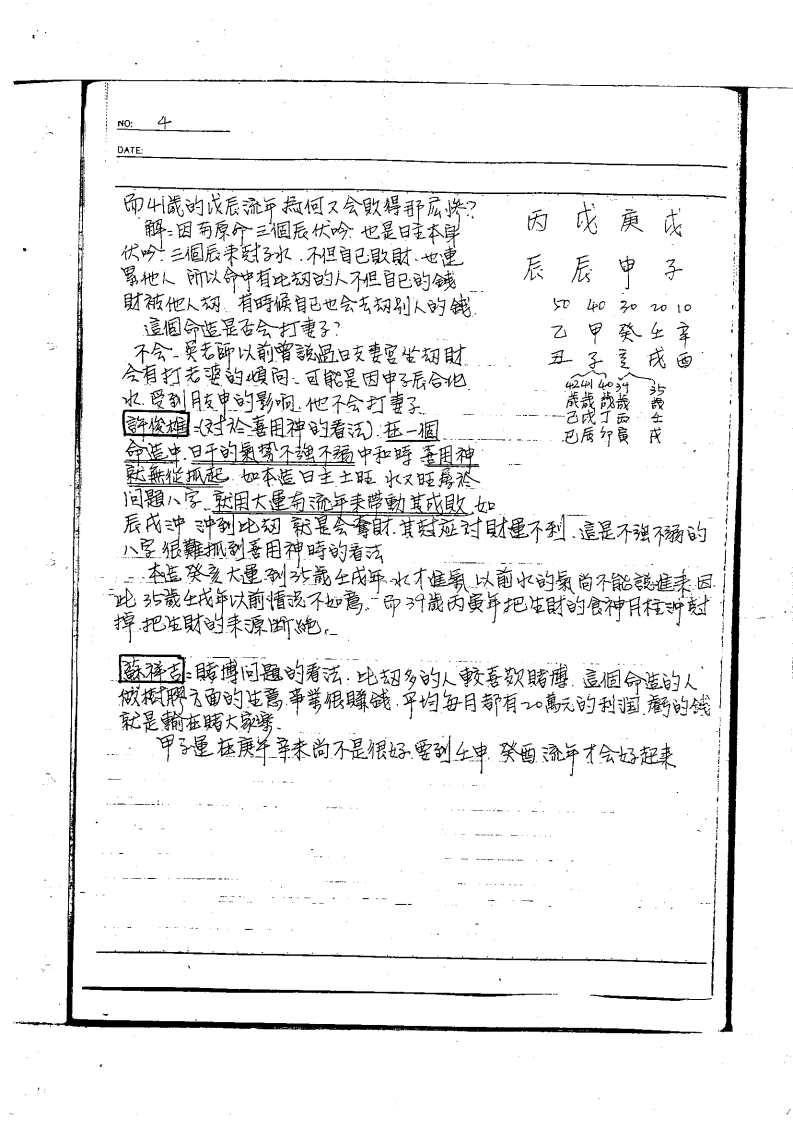 NO: 4
DATE:
而41歲的戊辰流年為何又会敗得那么慘?
解:因为原命三個辰伏吟 也是日主本身
伏吟.三個辰来尅子水.不但自己敗財.也連
累他人 所以命中有比刼的人不但自己的錢
財被他人刼.有時候自己也会去刼別人的錢
這個命造是否会打妻子?
不会.吳老師以前曾說過日支妻宮坐刼財
会有打老婆的傾向.可能是因申子辰合化
水.受到月支申的影响.他不会打妻子
許俊雄:(对於喜用神的看法).在一個
命造中.日干的氣勢不強不弱中和時 喜用神
就無從抓起 如本造日主土旺 水又旺為於
问題八字.就用大運与流年来帶動其成敗.如
辰戌沖 沖到比刼 就是会奪財.其对应対財運不利.這是不強不弱的
八字很難抓到喜用神時的看法
本造癸亥大運到35歲壬戌年.水才進氣.以前水的氣尚不能說進来因
此35歲壬戌年以前情況不如意.而39歲丙寅年把生財的食神月柱沖尅
掉.把生財的来源斷絶.
蘇祥吉:賭博问題的看法.比刼多的人較喜欢賭博.這個命造的人
做樹膠方面的生意.事業很賺錢.平均每月都有20萬元的利润.虧的钱
就是輸在賭大家樂.
甲子運在庚午辛未尚不是很好.要到壬申.癸酉流年才会好起来
丙 戊 庚 戊
辰 辰 申 子
50 40 30 20 10
乙 甲 癸 壬 辛
丑 子 亥 戌 酉
42 41 40 39 35
歲 歲 歲 歲 歲
己 戊 丁 丙 壬
巳 辰 卯 寅 戌